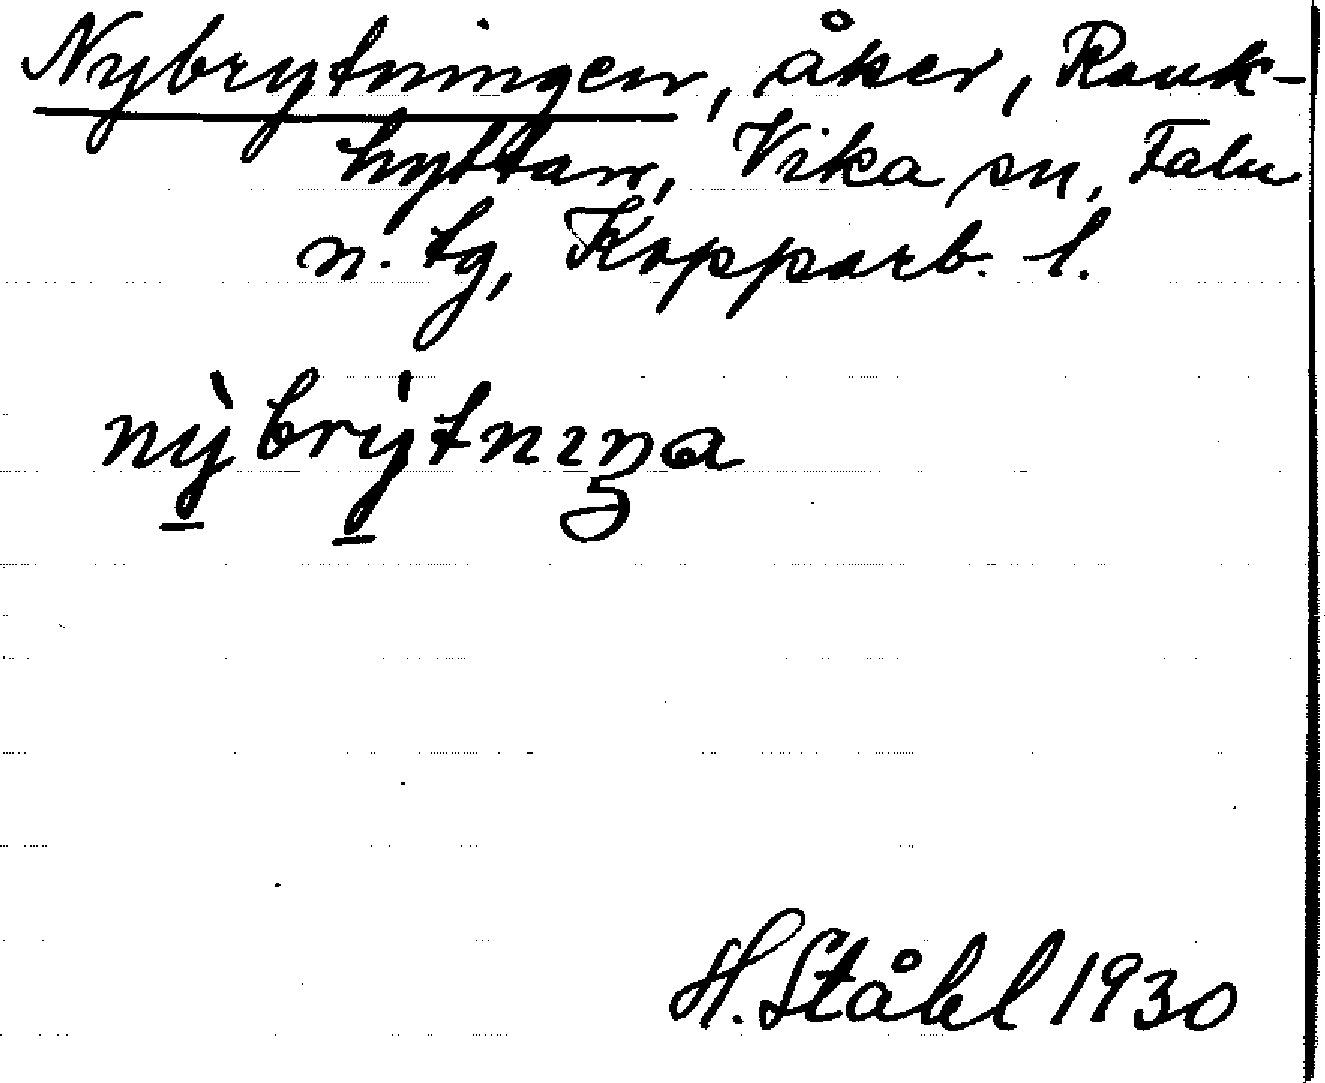 Nybrytningen, åker, Rank-
hyttan, Vika sn, Falu
n. tg, Kopparb. l.
nỳbrýtnıŋa
H. Ståhl 1930